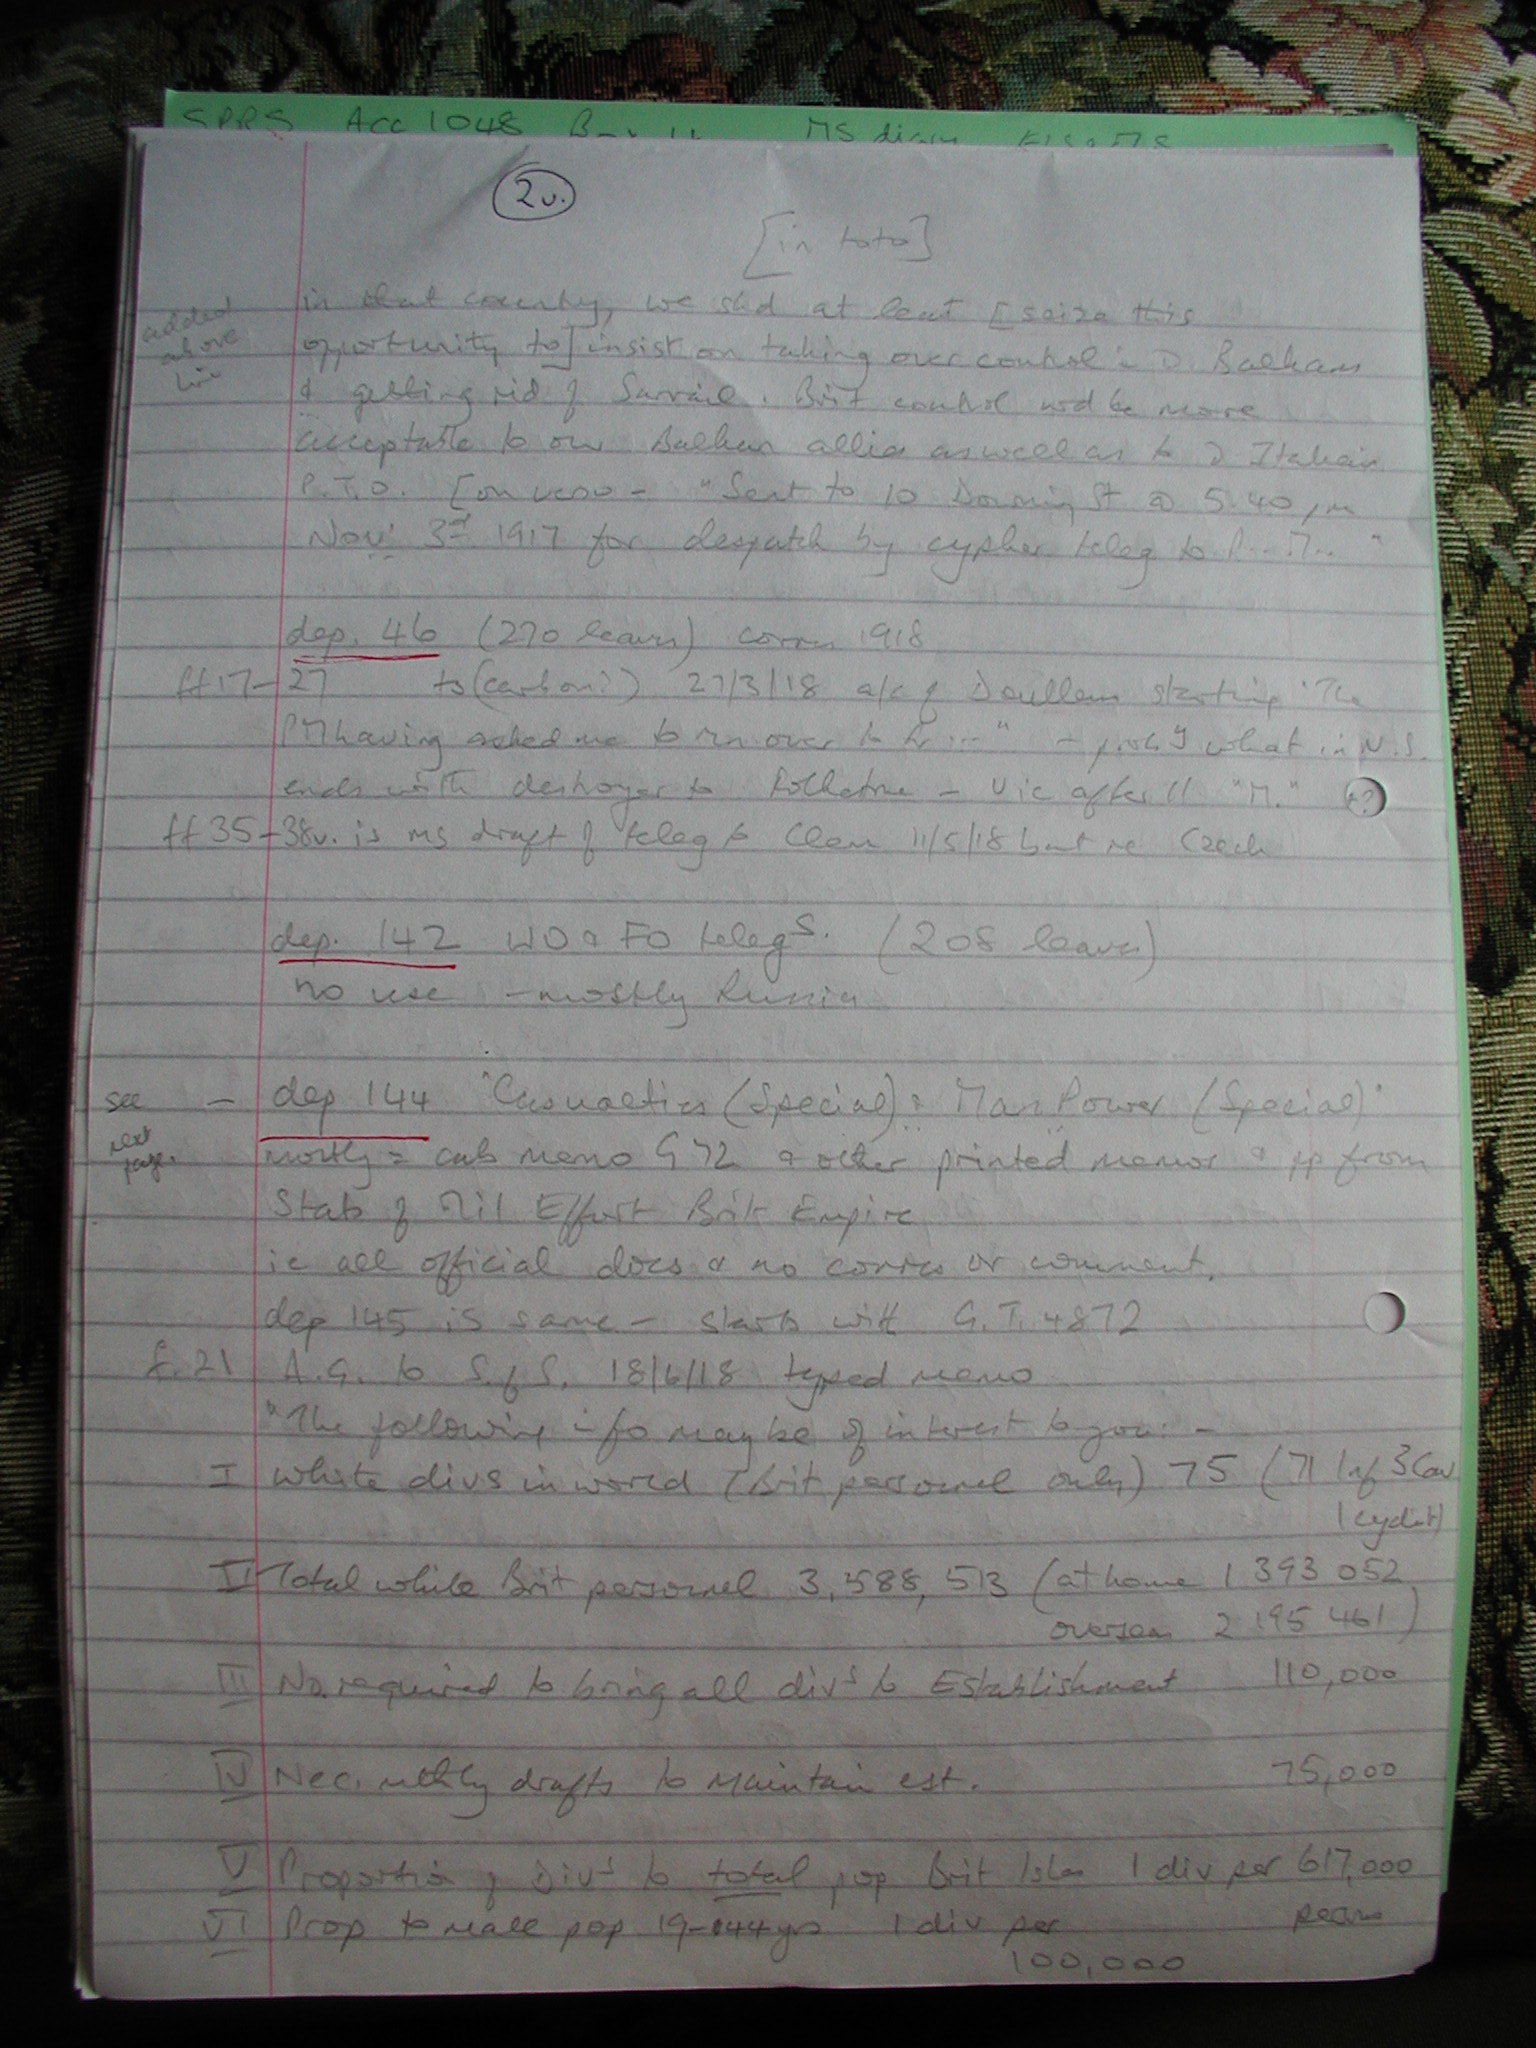 SPRS Acc 1048 Box MS diary
2v.
[in toto]
in that country, we shd at least [seize this
added above line
opportunity to] insist on taking over control in D. Balkans
& getting rid of Sarrail. Brit control wd be more
acceptable to our Balkan allies as well as to D Italian
P.T.O. [on verso - "Sent to 10 Downing St @ 5.40 pm
Nov: 3rd 1917 for despatch by cypher teleg to P.M.. "
dep. 46 (270 leaves) corres 1918
ff 17-27 ts (carbon?) 27/3/18 a/c of Doullens starting "The
PM having asked me to run over to Fr ..." - prob'y what in N.S.
ends with destroyer to Folkestone - Vic after 11 "M." +?
ff 35-38v. is ms draft of teleg to Clem 11/5/18 but re Czech
dep. 142 WO & FO telegs. (208 leaves)
no use - mostly Russia
see next page. - dep 144 "Casualties (Special) : Man Power (Special)"
mostly = cab memo G 72 & other printed memos & pp from
Stats of Mil Effort Brit Empire
ie all official docs & no corres or comment.
dep 145 is same - starts with G.T. 4872
f. 21 A.G. to S. of S. 18/6/18 typed memo
"The following info may be of interest to you: -
I White divs in world (Brit personnel only) 75 (71 Inf 3 Cav
1 cyclist)
II Total white Brit personnel 3,588,513 (at home 1 393 052
overseas 2 195 461)
III No. required to bring all divs to Establishment 110,000
IV Nec. mthly drafts to maintain est. 75,000
V Proportion of Divs to total pop Brit Isles 1 div per 617,000
VI Prop to male pop 19-44 yrs 1 div per
100,000